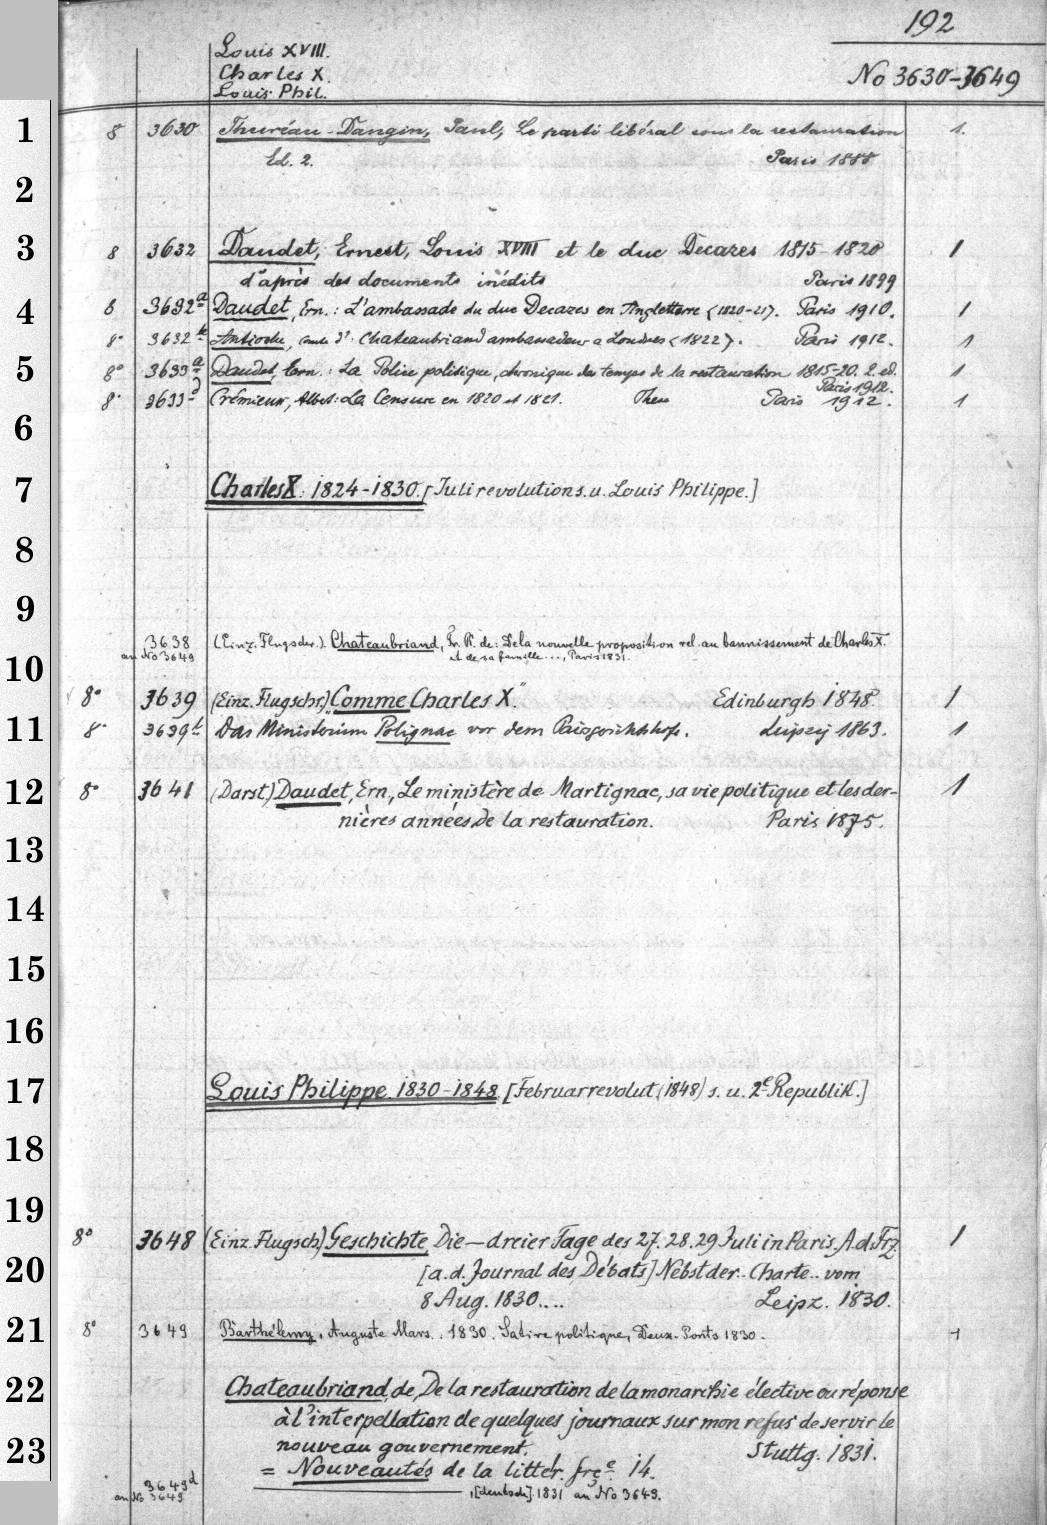 192
Louis XVIII.
Charles X.
Louis Phil.
No 3630-3649
1 8 3630 Thuréau-Dangin, Paul, Le parti libéral sous la restauration 1.
Ed. 2. Paris 1888
2
3 8 3632 Daudet, Ernest, Louis XVIII et le duc Decazes 1815-1820 1
d'après des documents inédits Paris 1899
4 8 3632a Daudet, Ern.: L'ambassade du duc Decazes en Angleterre (1820-21). Paris 1910. 1
8° 3632b Antioche, Comte d': Chateaubriand ambassadeur a Londres (1822). Paris 1912. 1
5 8° 3633a Daudet, Ern.: La Police politique, chronique des temps de la restauration 1815-20. 2. ed. 1
Paris 1912.
8° 3633 Crémieux, Albert: La Censure en 1820 et 1821. Thèse Paris 1912. 1
6
7 Charles X. 1824-1830. [Julirevolution s. u. Louis Philippe.]
8
9
3638 (Einz. Flugschr.). Chateaubriand, Fr. R. de: De la nouvelle proposition rel. au bannissement de Charles X.
an No 3649 et de sa famille..., Paris 1831.
10
8° 3639 (Einz. Flugschr.) "Comme Charles X". Edinburgh 1848. 1
11 8° 3639b Das Ministerium Polignac vor dem Pairsgerichtshofe. Leipzig 1863. 1
12 8° 3641 (Darst.) Daudet, Ern., Le ministère de Martignac, sa vie politique et les der- 1
nières années de la restauration. Paris 1875.
13
14
15
16
17 Louis Philippe. 1830-1848. [Februarrevolut. (1848) s. u. 2e Republik.]
18
19
8° 3648 (Einz. Flugsch.) Geschichte Die — dreier Tage des 27. 28. 29 Juli in Paris. A. d. Frz 1
20 [a. d. Journal des Débats] Nebst der.. Charte.. vom
8 Aug. 1830.... Leipz. 1830.
21 8° 3649 Barthélemy, Auguste Mars.: 1830. Satire politique, Deux-Ponts 1830. 1
22 Chateaubriand, de, De la restauration de la monarchie élective ou réponse
à l'interpellation de quelques journaux sur mon refus de servir le
23 nouveau gouvernement. Stuttg. 1831.
= Nouveautés de la littér. frçe. 14.
3649d
an No 3649 , [deutsch] 1831 an No 3649.